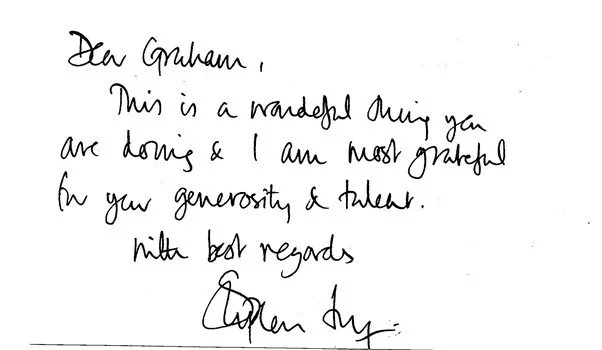 Dear Graham,
This is a wonderful thing you
are doing & I am most grateful
for your generosity & talent.
With best regards
Stephen Fry